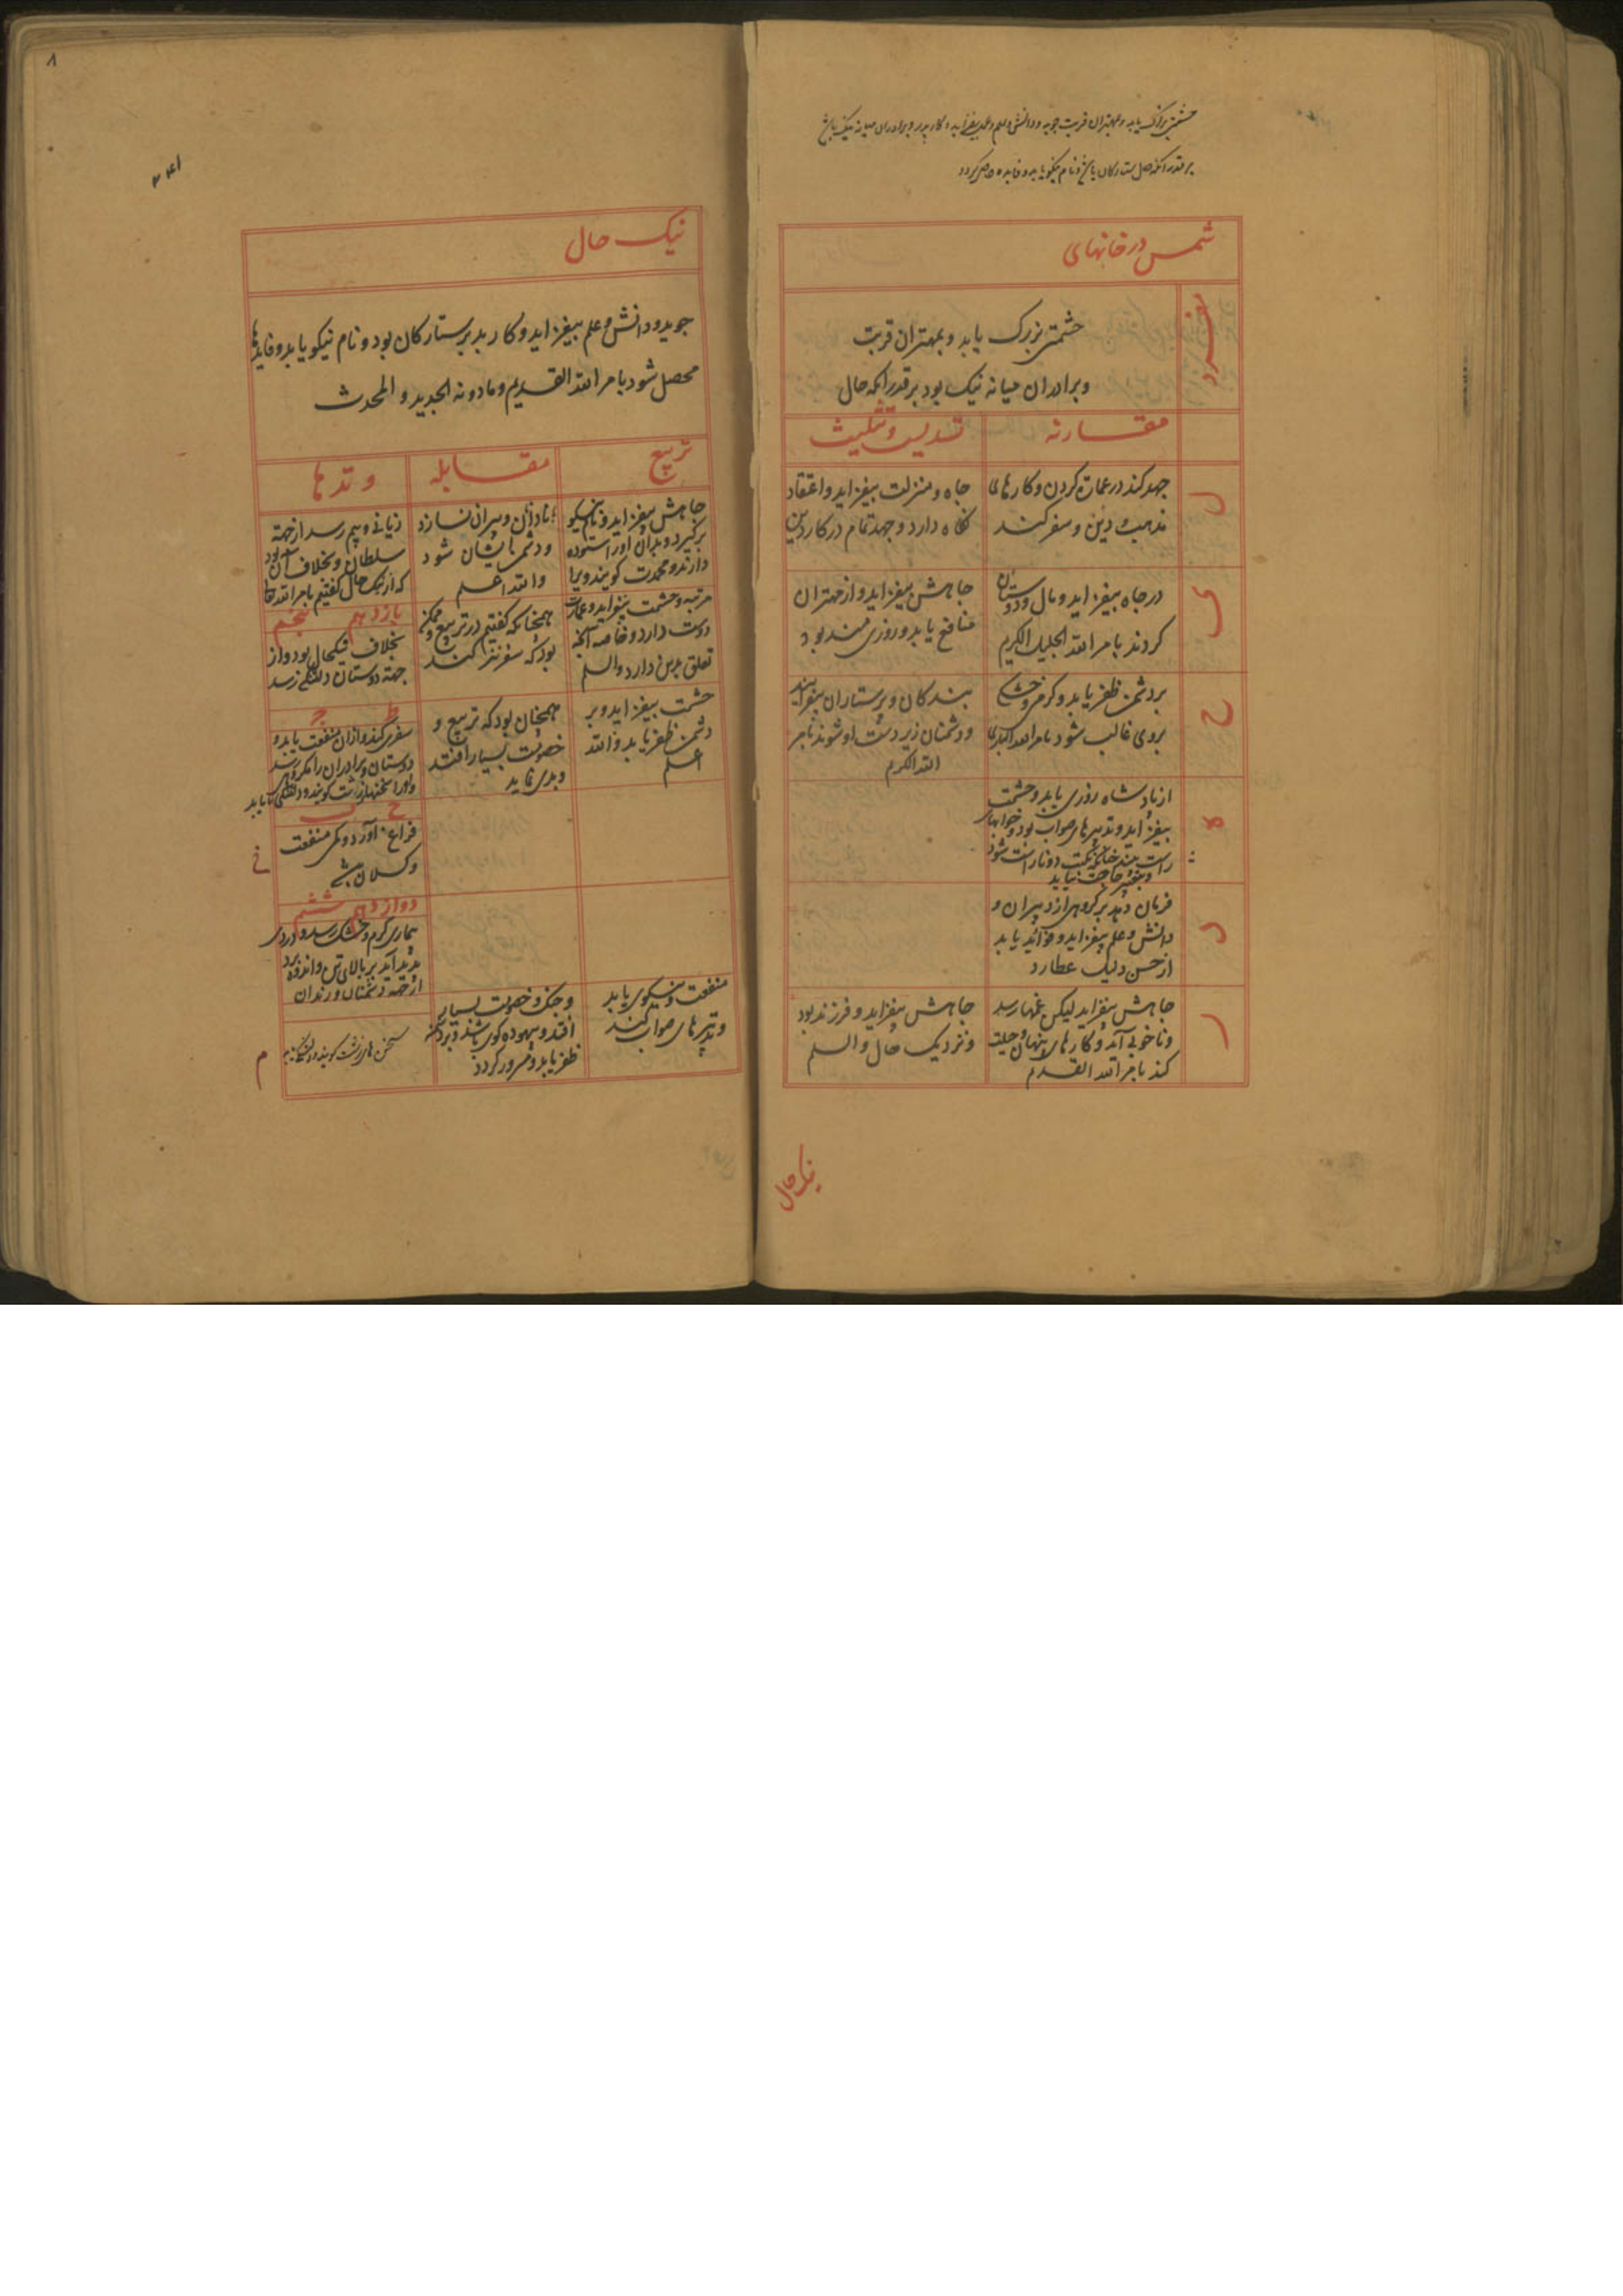 حشمتی بزرک یابد و بمهتران قربت جوید و دانش و علم و عمل بیفزاید و کار پدر و برادران میانه نیک باشد
بر قدر آنکه حال ستارکان باشد و نام نیکو یابد و فایده حاصل کردد
شمس در خانهای
مفرد
حشمتی بزرک یابد و بمهتران قربت
و برادران میانه نیک بود بر قدر آنکه حال
مقارنه
تسدیس و تثلیث
ل
جهد کند در عمارت کردن و کارهای
مذهب و دین و سفر کند
جاه و منزلت بیفزاید و اعتقاد
نکاه دارد و جهد تمام در کار دین
ی
در جاه بیفزاید و مال و دوستان
کردند بامر الله الجلیل الکریم
جاهش بیفزاید و از مهتران
منافع یابد و روزی مند بود
ح
بر دشمن ظفر یابد و کرمی و خشکی
بروی غالب شود بامر الله
بندکان و پرستاران بیفزایند
و دشمنان زیر دست او شوند بامر
الله الکریم
ه
از پادشاه روزی یابد و حشمت
بیفزاید و تدبیرهای صواب بود و خوابهای
راست بیند
حاجت نیاید
د
فرمان دهد بر کروهی از دبیران و
دانش و علم بیفزاید و فواید یابد
از حسن دلیل عطارد
ر
جاهش بیفزاید لیکن غمها رسد
و ناخوبی آید و کارهای پنهان و حیلت
کند بامر الله القدیم
جاهش بیفزاید و فرزند بود
و نزدیک حال والسلم
نیک حال
۸
۲۴۱
نیک حال
جوید و دانش و علم بیفزاید و کار پدر پرستارکان بود و نام نیکو یابد و فایدها
محصل شود بامر الله القدیم و مادونه الجدید و المحدث
تربیع
مقابله
وتدها
جاهش بیفزاید و نام نیکو
برکیرد و پدران او را ستوده
دارند و محمدت کویند ویرا
با نادانان و پیران نسازد
و دشمن ایشان شود
والله اعلم
زیانی و بیم رسد از جهة
سلطان و بخلاف آن بود
که از نیک حال کفتیم بامر الله تعا
مرتبه و حشمت بیفزاید و عمارت
دوست دارد و خاصه آنچه
تعلق بدین دارد والسلم
همچنانکه کفتیم در تربیع و ممکن
بود که سفر نیز کند
یازدهم پنجم
بخلاف نیکحال بود و از
جهة دوستان دلتنکی رسد
حشمت بیفزاید و بر
دشمن ظفر یابد والله
اعلم
همچنان بود که تربیع و
خصومت بسیار افتد
و بدی نماید
ط ج
سفر کند و از آن منفعت یابد و
دوستان و برادران را مکروهی رسد
و او را سخنهای زشت کویند و دلتنکی یابد
ح ب
فراغ آورد و کمی منفعت
و کسلان باشد
دوازدهم ششم
بیماری کرم و خشک رسد و دردی
پدید آید بر بالای تن و اندوه برد
از جهة دشمنان و زندان
منفعت و نیکوی یابد
و تدبیرهای صواب کند
و جنک و خصومت بسیار
افتد و بیهوده کوی باشد و بر دشمن
ظفر یابد و مسرور کردد
سخن های زشت کویند و دلتنک
م